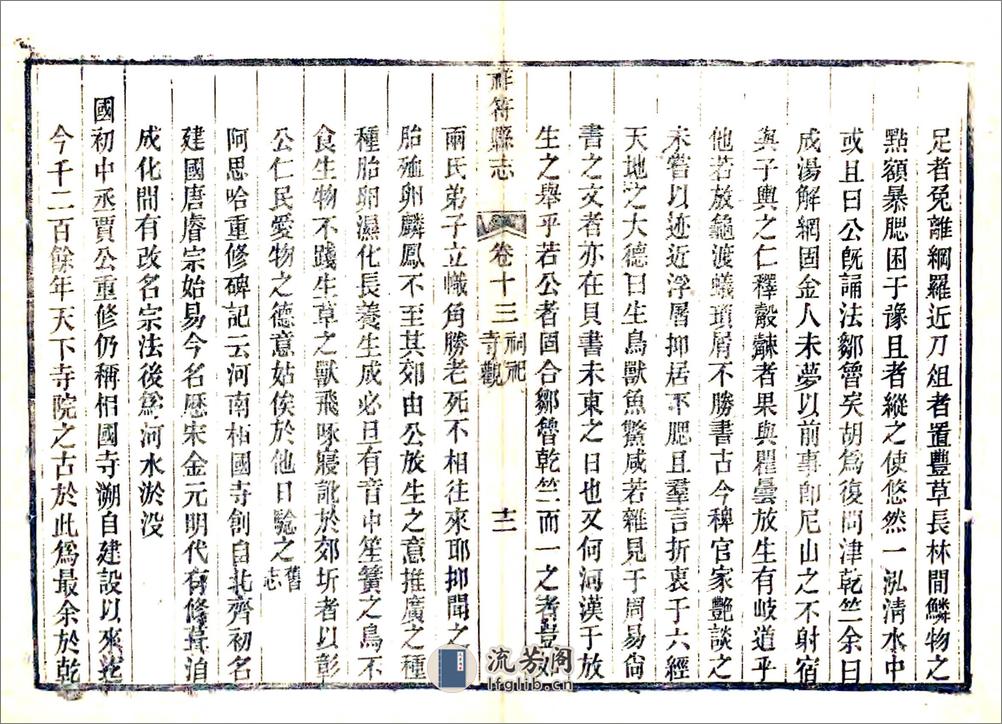 足者免離網羅近刀俎者置豐草長林間鱗物之
點額暴腮困于豫且者縱之使悠然一泓清水中
或且曰公旣誦法鄒魯矣胡爲復問津乾竺余曰
成湯解網固金人未夢以前事卽尼山之不射宿
與子輿之仁釋觳觫者果與瞿曇放生有岐道乎
他若放龜渡蟻瑣屑不勝書古今稗官家艷談之
未嘗以迹近浮屠抑居不腮且羣言折衷于六經
天地之大德曰生鳥獸魚鱉咸若雜見于周易尙
書之文者亦在貝書未東之日也又何河漢于放
生之舉乎若公者固合鄒魯乾竺而一之者豈
祥符縣志 卷十三 祠祀 寺觀 十二
兩氏弟子立幟角勝老死不相往來耶抑聞之
胎殈卵麟鳳不至其郊由公放生之意推廣之種
種胎卵濕化長養生成必且有音中笙簧之鳥不
食生物不踐生草之獸飛啄寢訛於郊圻者以彰
公仁民愛物之德意姑俟於他日驗之舊志
阿思哈重修碑記云河南相國寺創自北齊初名
建國唐睿宗始易今名歷宋金元明代有修葺洎
成化間有改名宗法後爲河水淤没
國初中丞賈公重修仍稱相國寺溯自建設以來迄
今千二百餘年天下寺院之古於此爲最余於乾
流芳阁
lfglib.cn